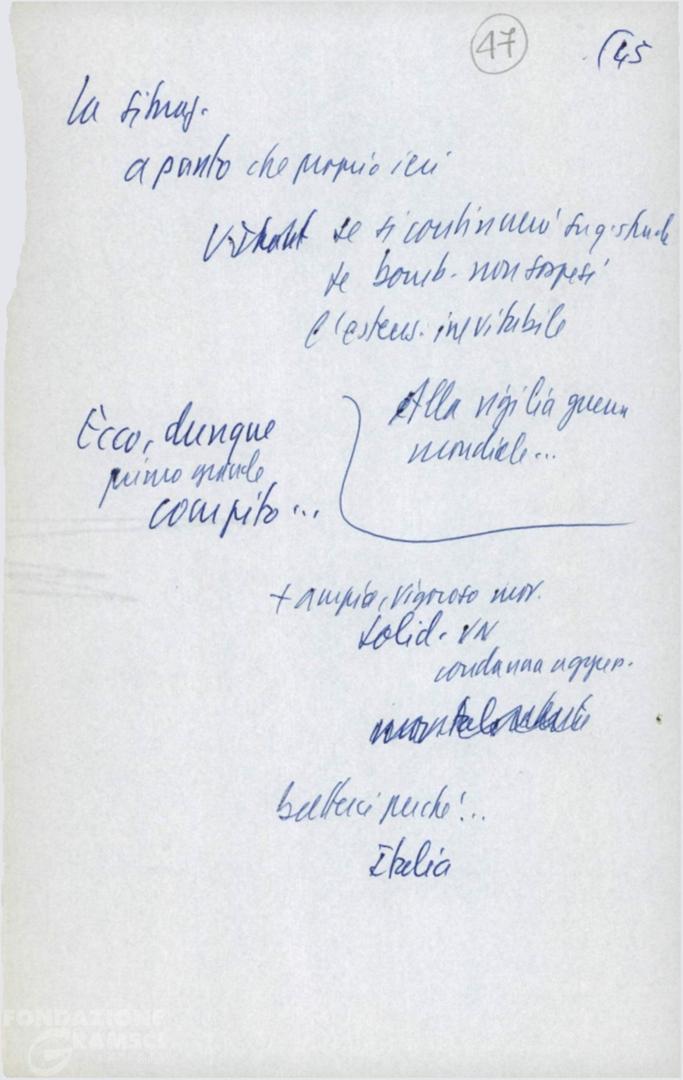 47
(45
La situaz.
a punto che proprio ieri
U Thant se si continuerà su q. strada
se bomb. non sospesi
l'estens. inevitabile
Alla vigilia guerra
mondiale...
Ecco, dunque
primo grande
compito...
+ ampio, vigoroso mov.
solid. VN
condanna aggres.
batterci perché!..
Italia
FONDAZIONE
GRAMSCI